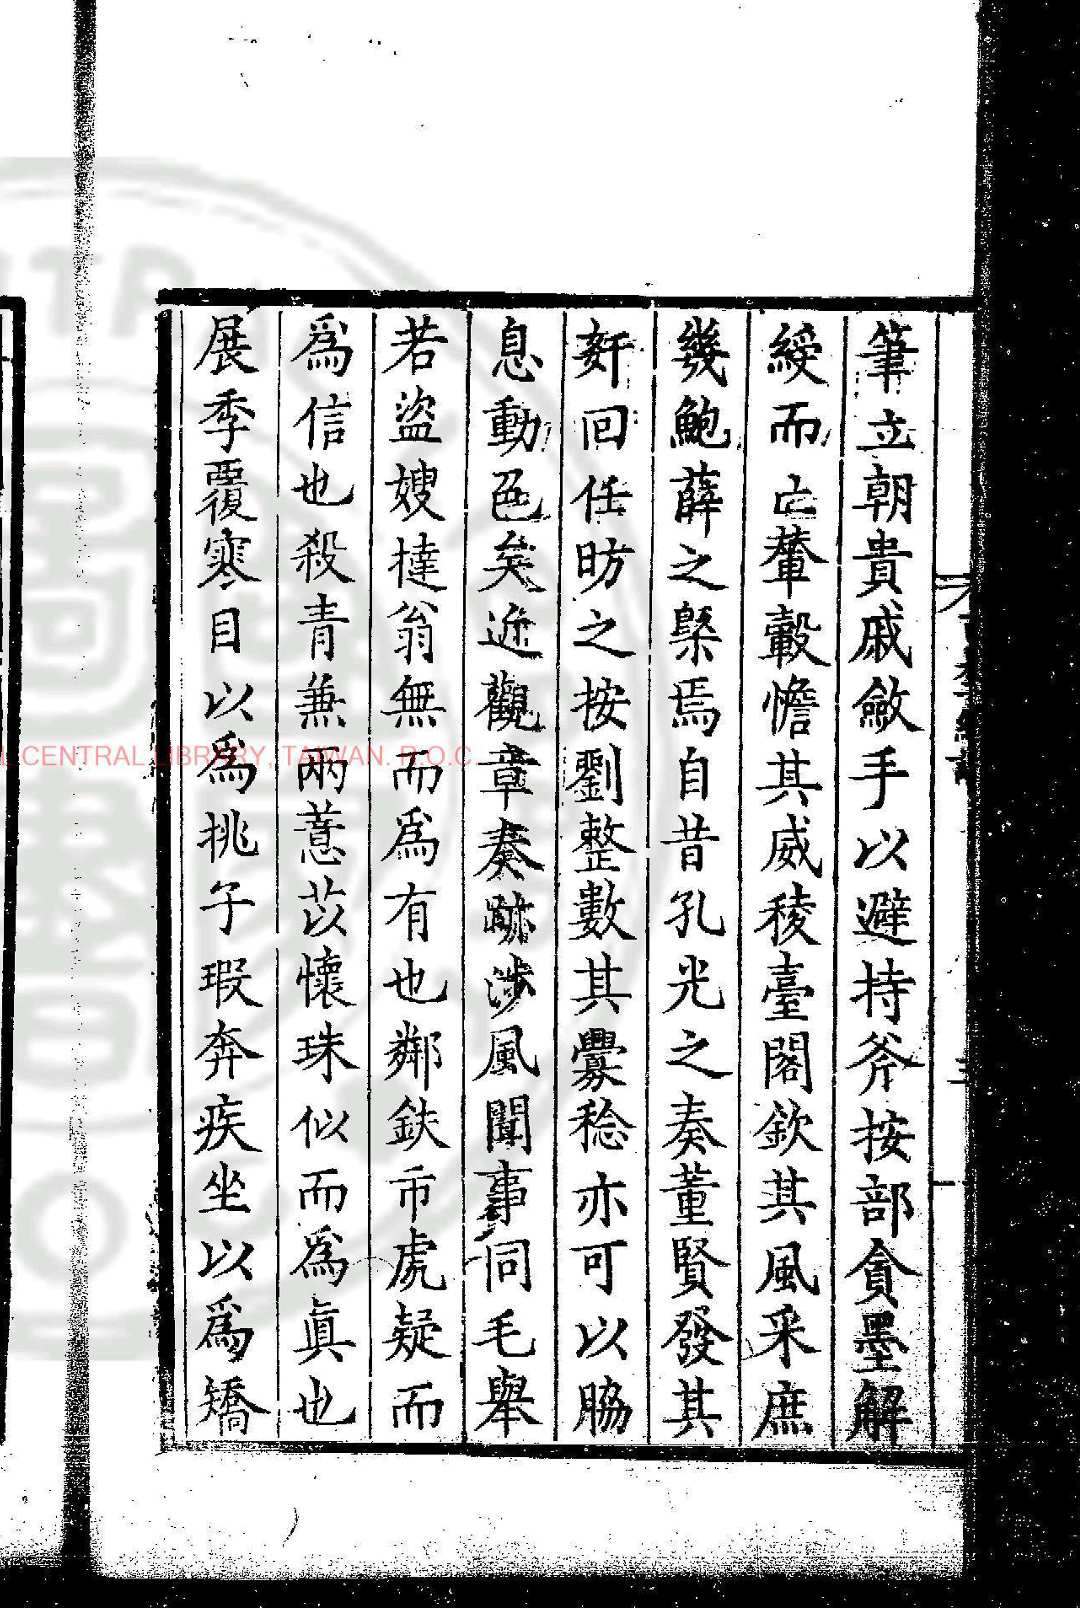 筆立朝貴戚斂手以避持斧按部貪墨解
綬而亡輦轂憺其威稜臺閣欽其風采庶
幾鮑薛之槩焉自昔孔光之奏董賢發其
奸回任昉之按劉整數其釁稔亦可以脇
息動色矣近觀章奏跡涉風聞事同毛舉
若盜嫂撻翁無而爲有也鄰鈇市虎疑而
爲信也殺青兼兩薏苡懷珠似而爲眞也
展季覆寒目以爲挑子瑕奔疾坐以爲矯
CENTRAL LIBRARY, TAIWAN. R.O.C.